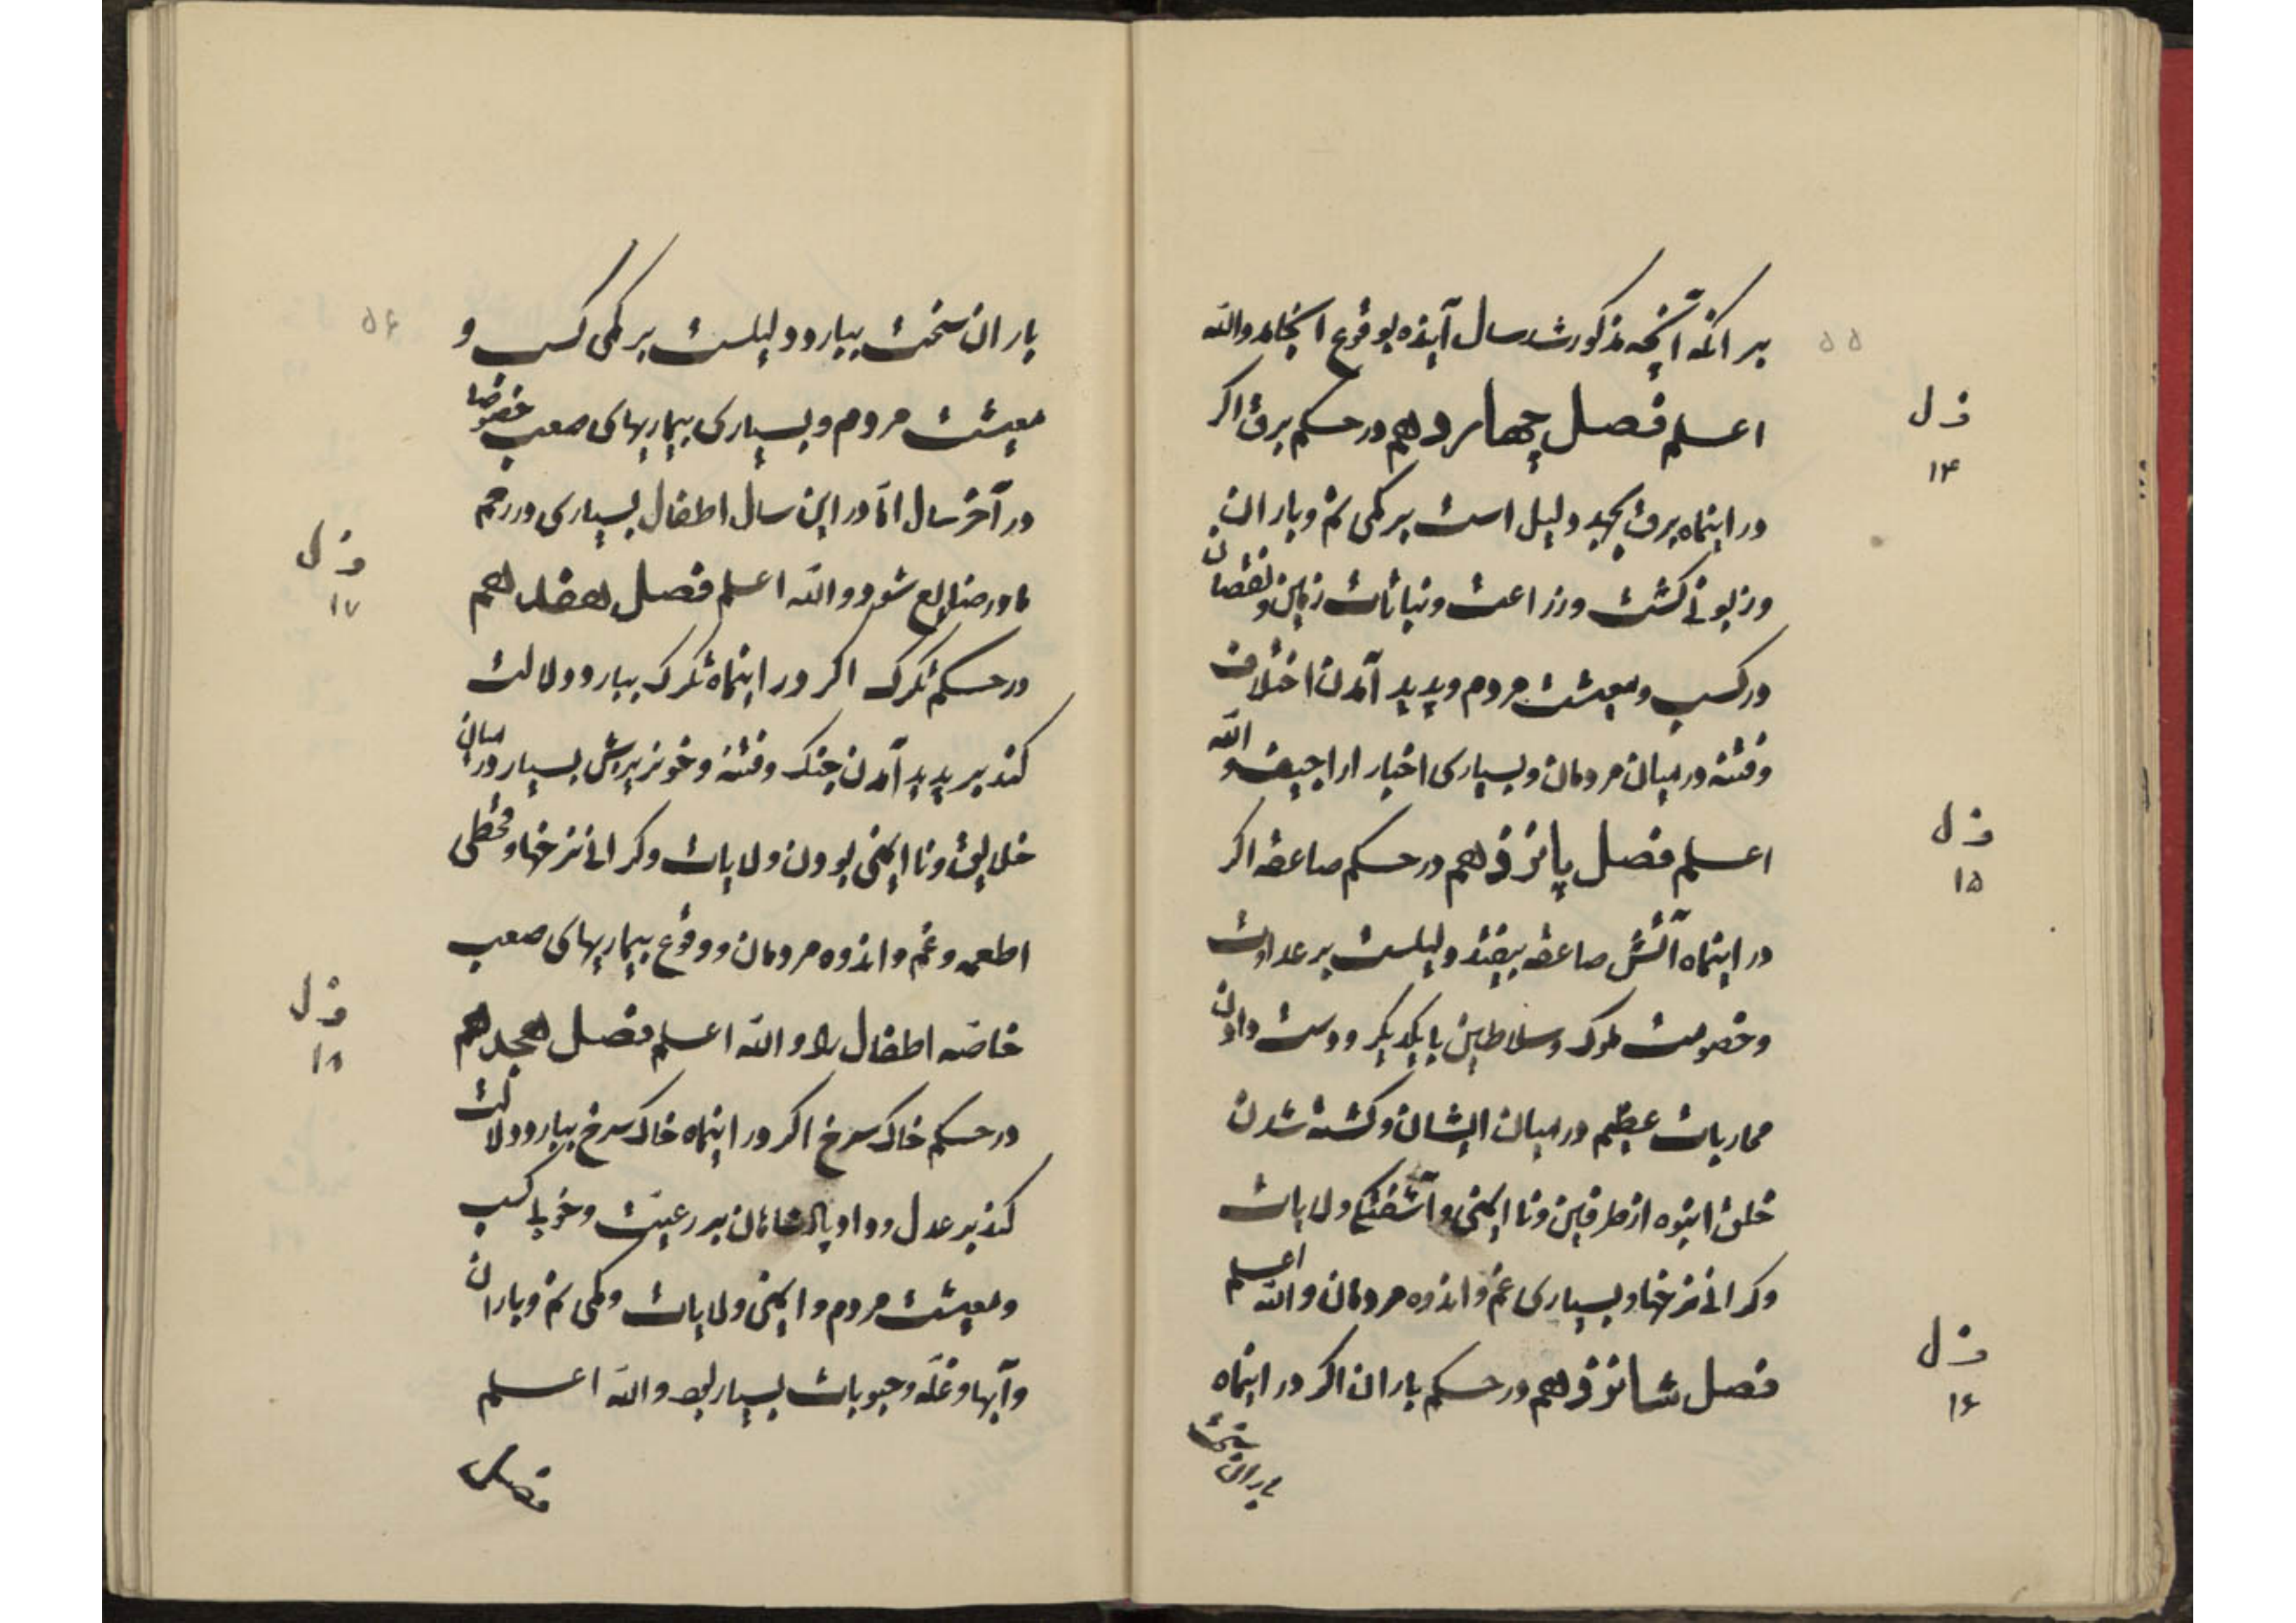 ۵۵
بر آنکه آنچه مذکور شد سال آینده بوقوع انجامد والله
اعلم فصل چهاردهم در حکم برق اگر
ف ل
۱۴
در اینماه برق بجهد دلیل است بر کمی نم و باران
و زبونی کشت و زراعت و نباتات زمین و نقصان
در کسب و معیشت مردم و پدید آمدن اختلاف
و فتنه در میان مردمان و بسیاری اخبار اراجیف والله
اعلم فصل پانزدهم در حکم صاعقه اگر
ف ل
۱۵
در اینماه آتش صاعقه بیفتد دلیلست بر عداوت
و خصومت ملوک و سلاطین با یکدیگر و دست دادن
محاربات عظیم در میان ایشان و کشته شدن
خلق انبوه از طرفین و ناایمنی و آشفتگی ولایات
و کرانی نرخها و بسیاری غم و اندوه مردمان والله اعلم
فصل شانزدهم در حکم باران اگر در اینماه
ف ل
۱۶
باران سخت
۵۶
باران سخت ببارد دلیلست بر کمی کسب و
معیشت مردم و بسیاری بیماریهای صعب خصوصا
در آخر سال امّا در این سال اطفال بسیاری در رحم
مادر ضایع شود والله اعلم فصل هفدهم
ف ل
۱۷
در حکم تکرک اکر در اینماه تکرک ببارد دلالت
کند بر پدید آمدن جنک و فتنه و خونریزش بسیار در میان
خلایق و ناایمنی بودن ولایات و کرانی نرخها و قحطی
اطعمه و غم و اندوه مردمان و وقوع بیماریهای صعب
خاصّه اطفال را والله اعلم فصل هجدهم
ف ل
۱۸
در حکم خاک سرخ اکر در اینماه خاک سرخ ببارد دلالت
کند بر عدل و داد پادشاهان بر رعیّت و خوبی کسب
و معیشت مردم و ایمنی ولایات و کمی نم و باران
و آبها و غلّه و حبوبات بسیار بود والله اعلم
فصل